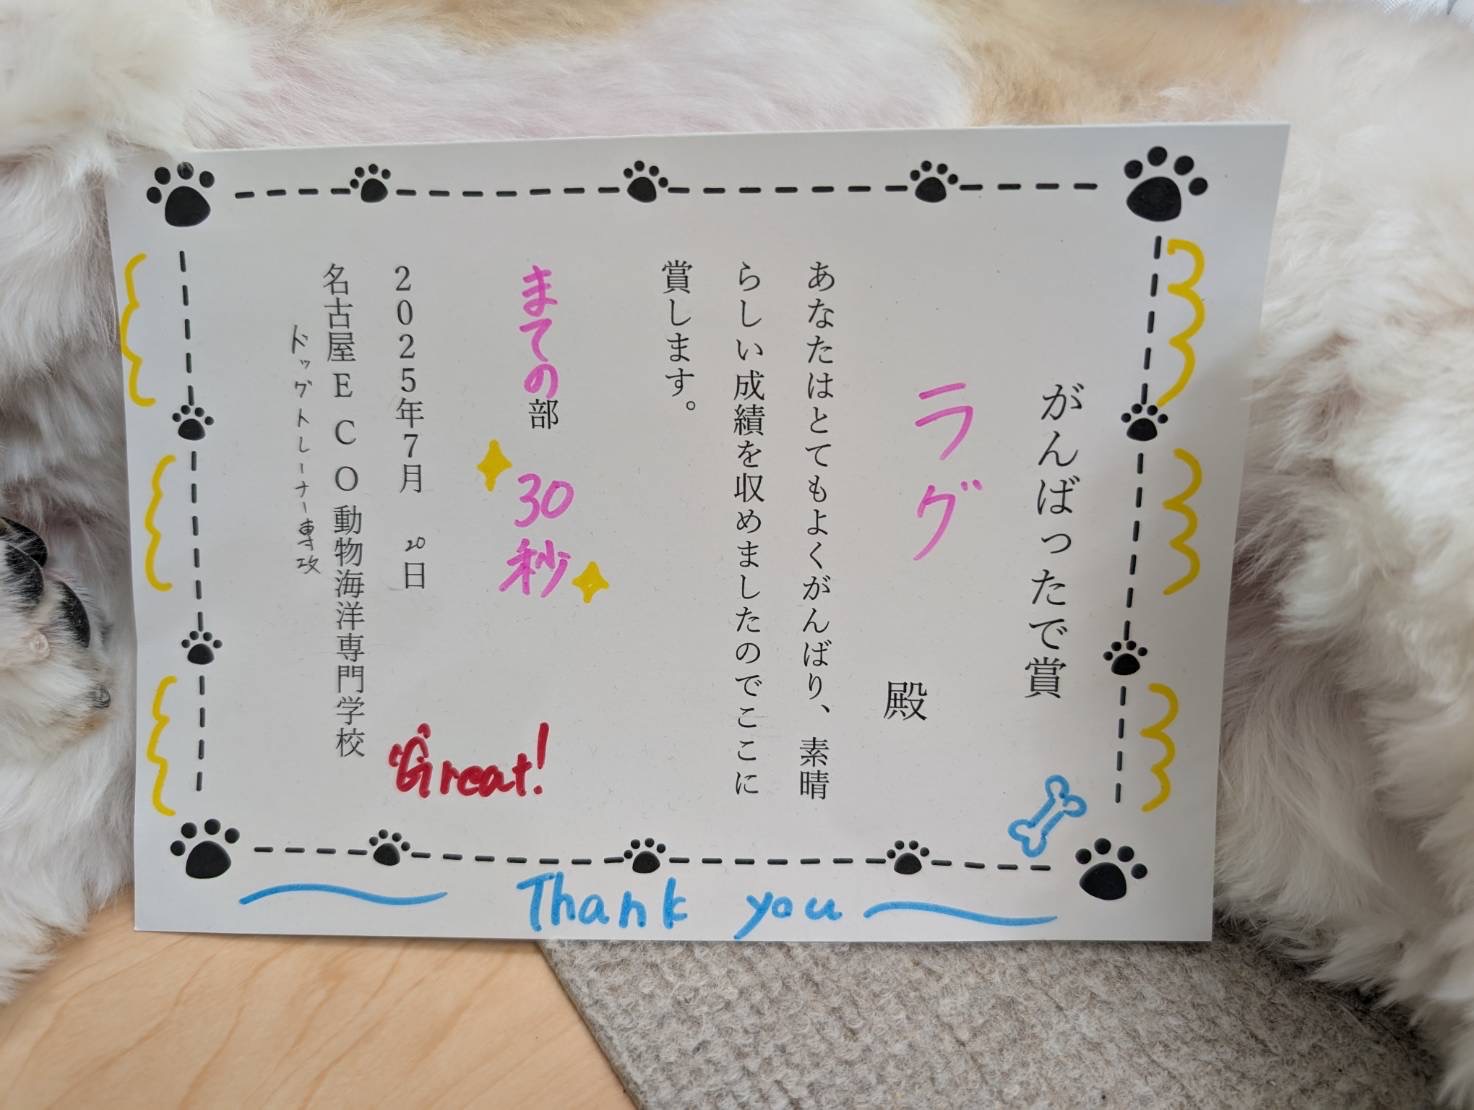 がんばったで賞
ラグ 殿
あなたはとてもよくがんばり、素晴
らしい成績を収めましたのでここに
賞します。
まての部 30秒
2025年7月 20日
名古屋ECO動物海洋専門学校
ドッグトレーナー専攻
Great!
Thank you